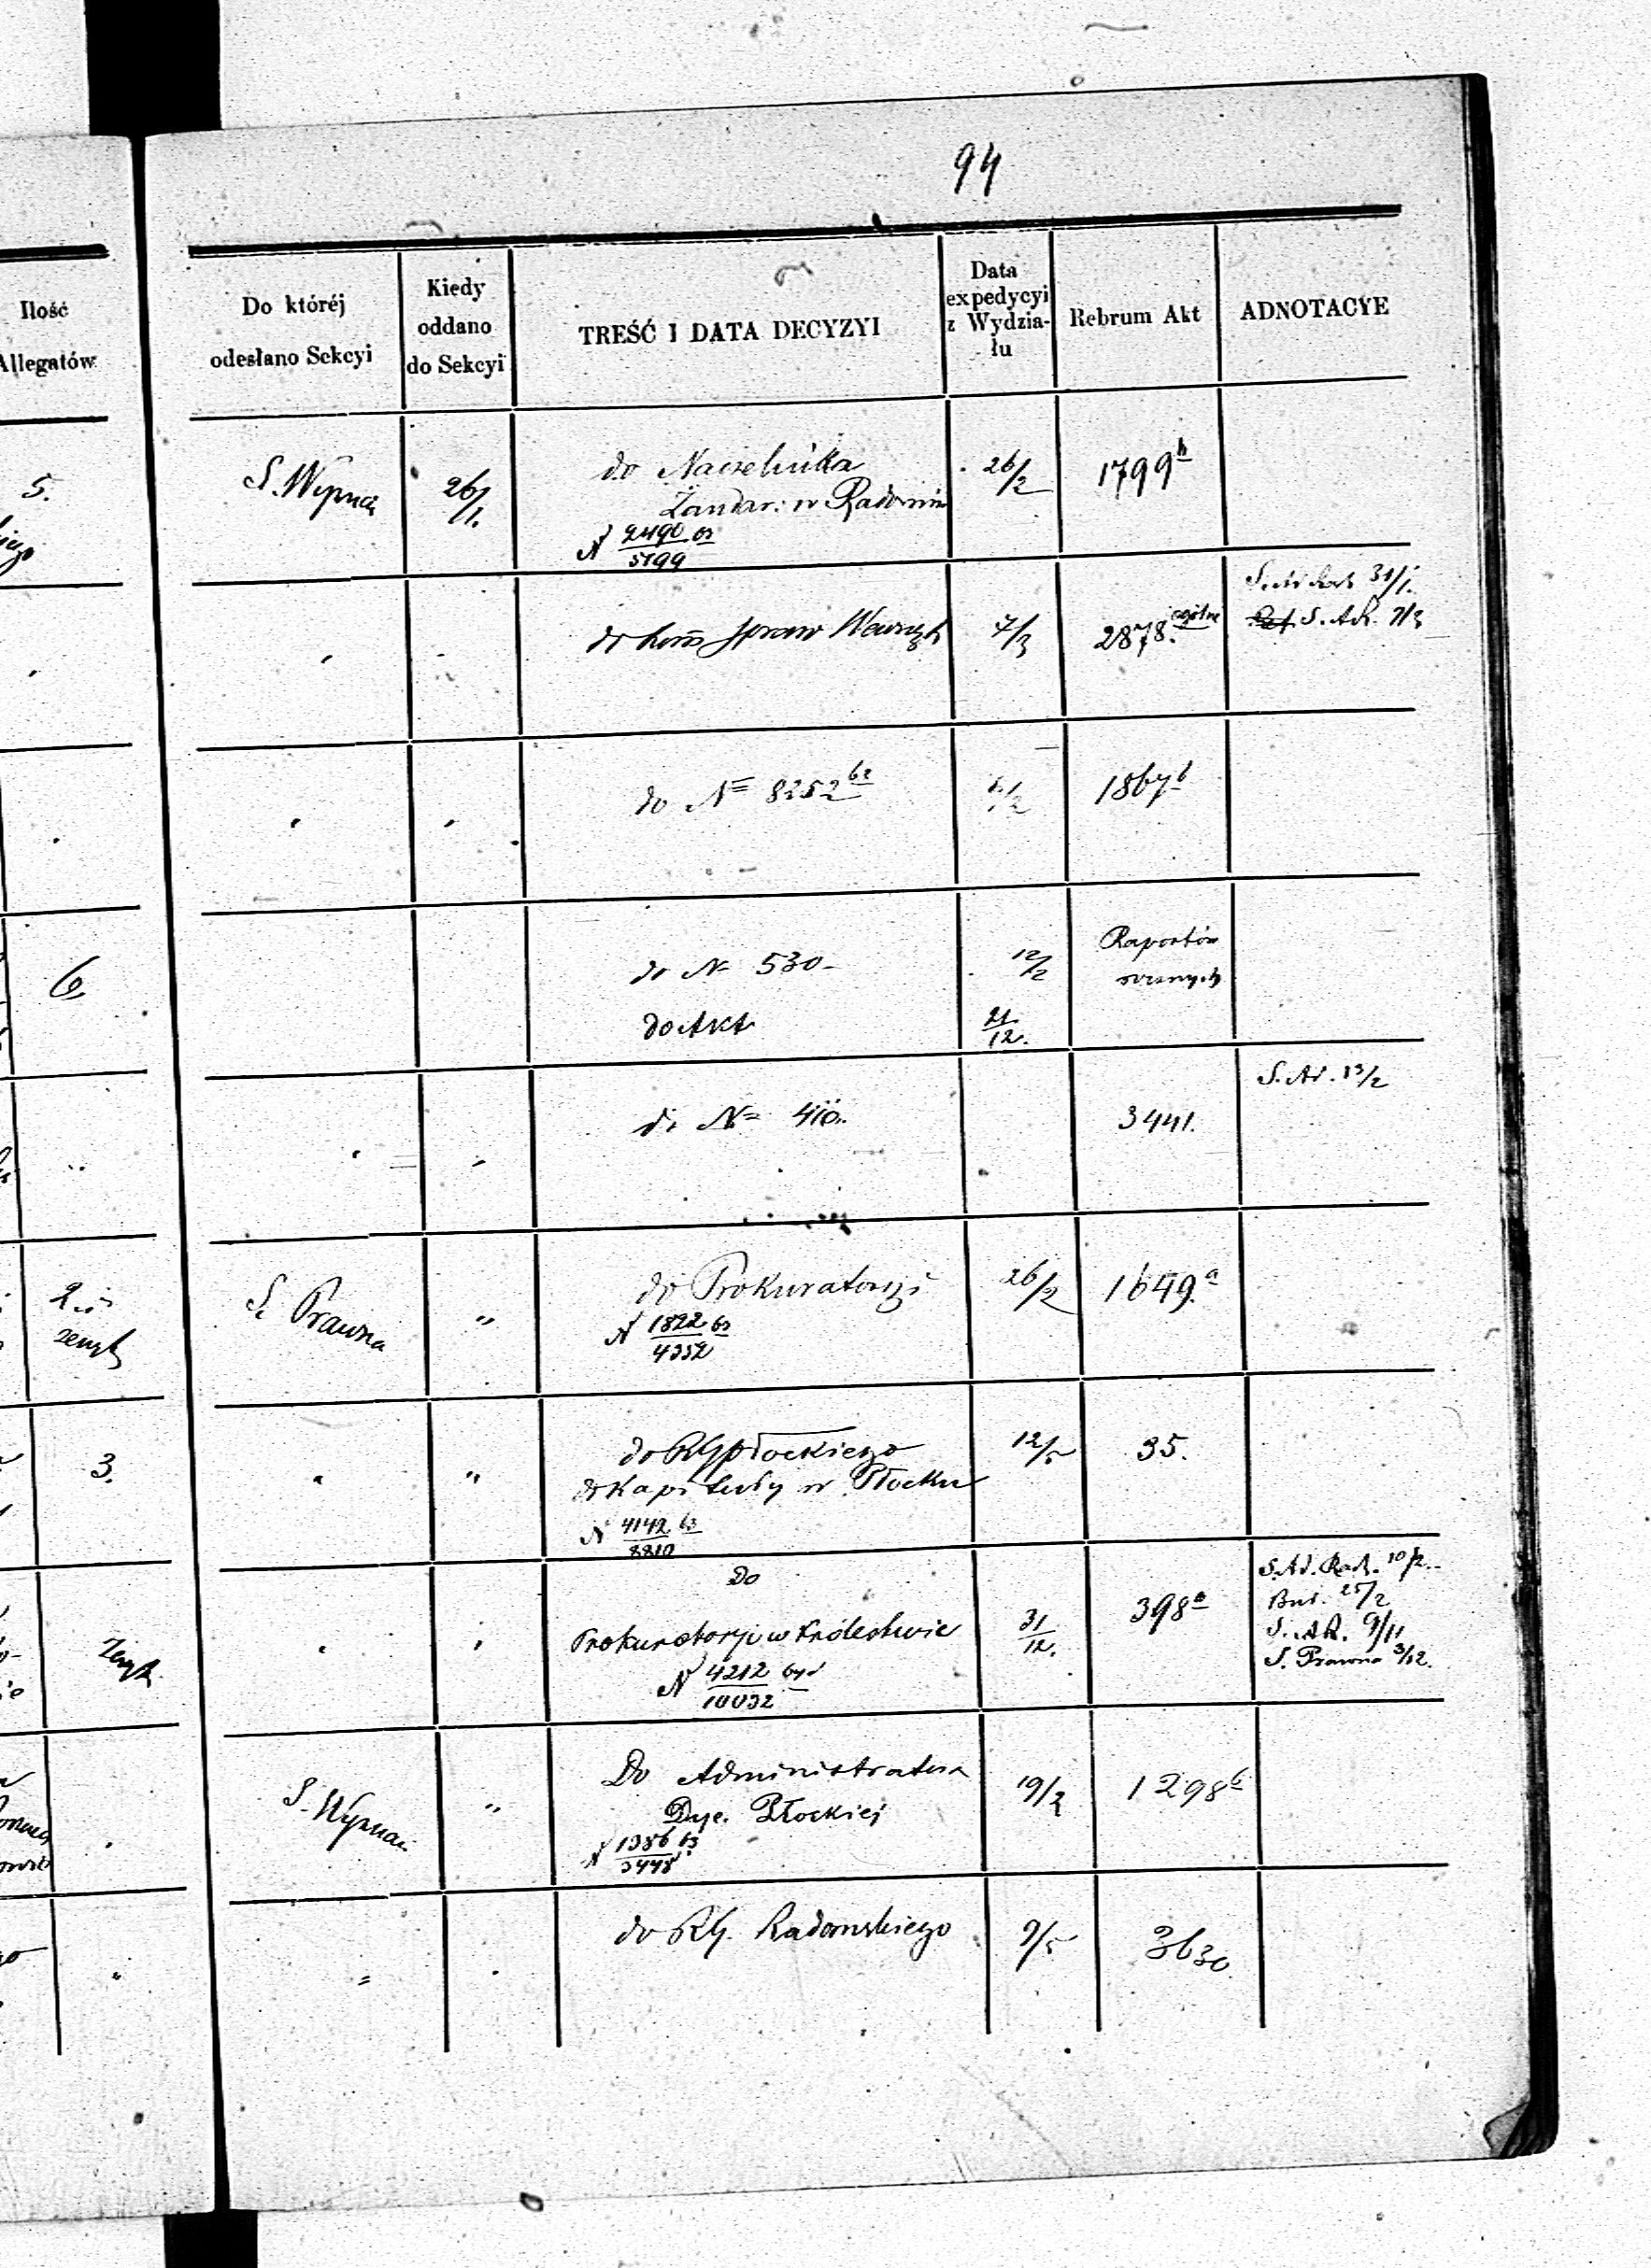 94
Ilość
Allegatów
Do któréj
odesłano Sekcyi
Kiedy
oddano
do Sekcyi
TREŚĆ I DATA DECYZYI
Data
expedycyi
z Wydzia-
łu
Rebrum Akt
ADNOTACYE
5.
S. Wyznań
26/1.
do Naczelnika
Żandar: w Radomiu
N 2490 63
5799
26/2
1799 b
do Kom Spraw Wewnęt
7/3
2878. ogólne
31/1.
S. AR. 7/3
do N= 8252 62
1867 b
6
do N= 530-
do Akt
12/2
21
12.
Raportów
3441.
S. Ad. 13/2
S. Prawna
"
do Prokuratoryi
N 1822 63
4352
26/2
1649. a
3.
"
do RG Płockiego
do Kapituły w Płocku
N 4142 63
8810
12/5
35.
Zeszyt
Do
Prokuratoryi w Królestwie
N 4212
10032
31
12.
398 a
S. Ad. Rach. 10/2.
25/2
S. AR. 9/11
S. Prawna 3/12.
S. Wyznań
"
Do Administratora
Dyec. Płockiej
N 1386 63
3448
19/2
1298 b
do RG. Radomskiego
9/5
3630